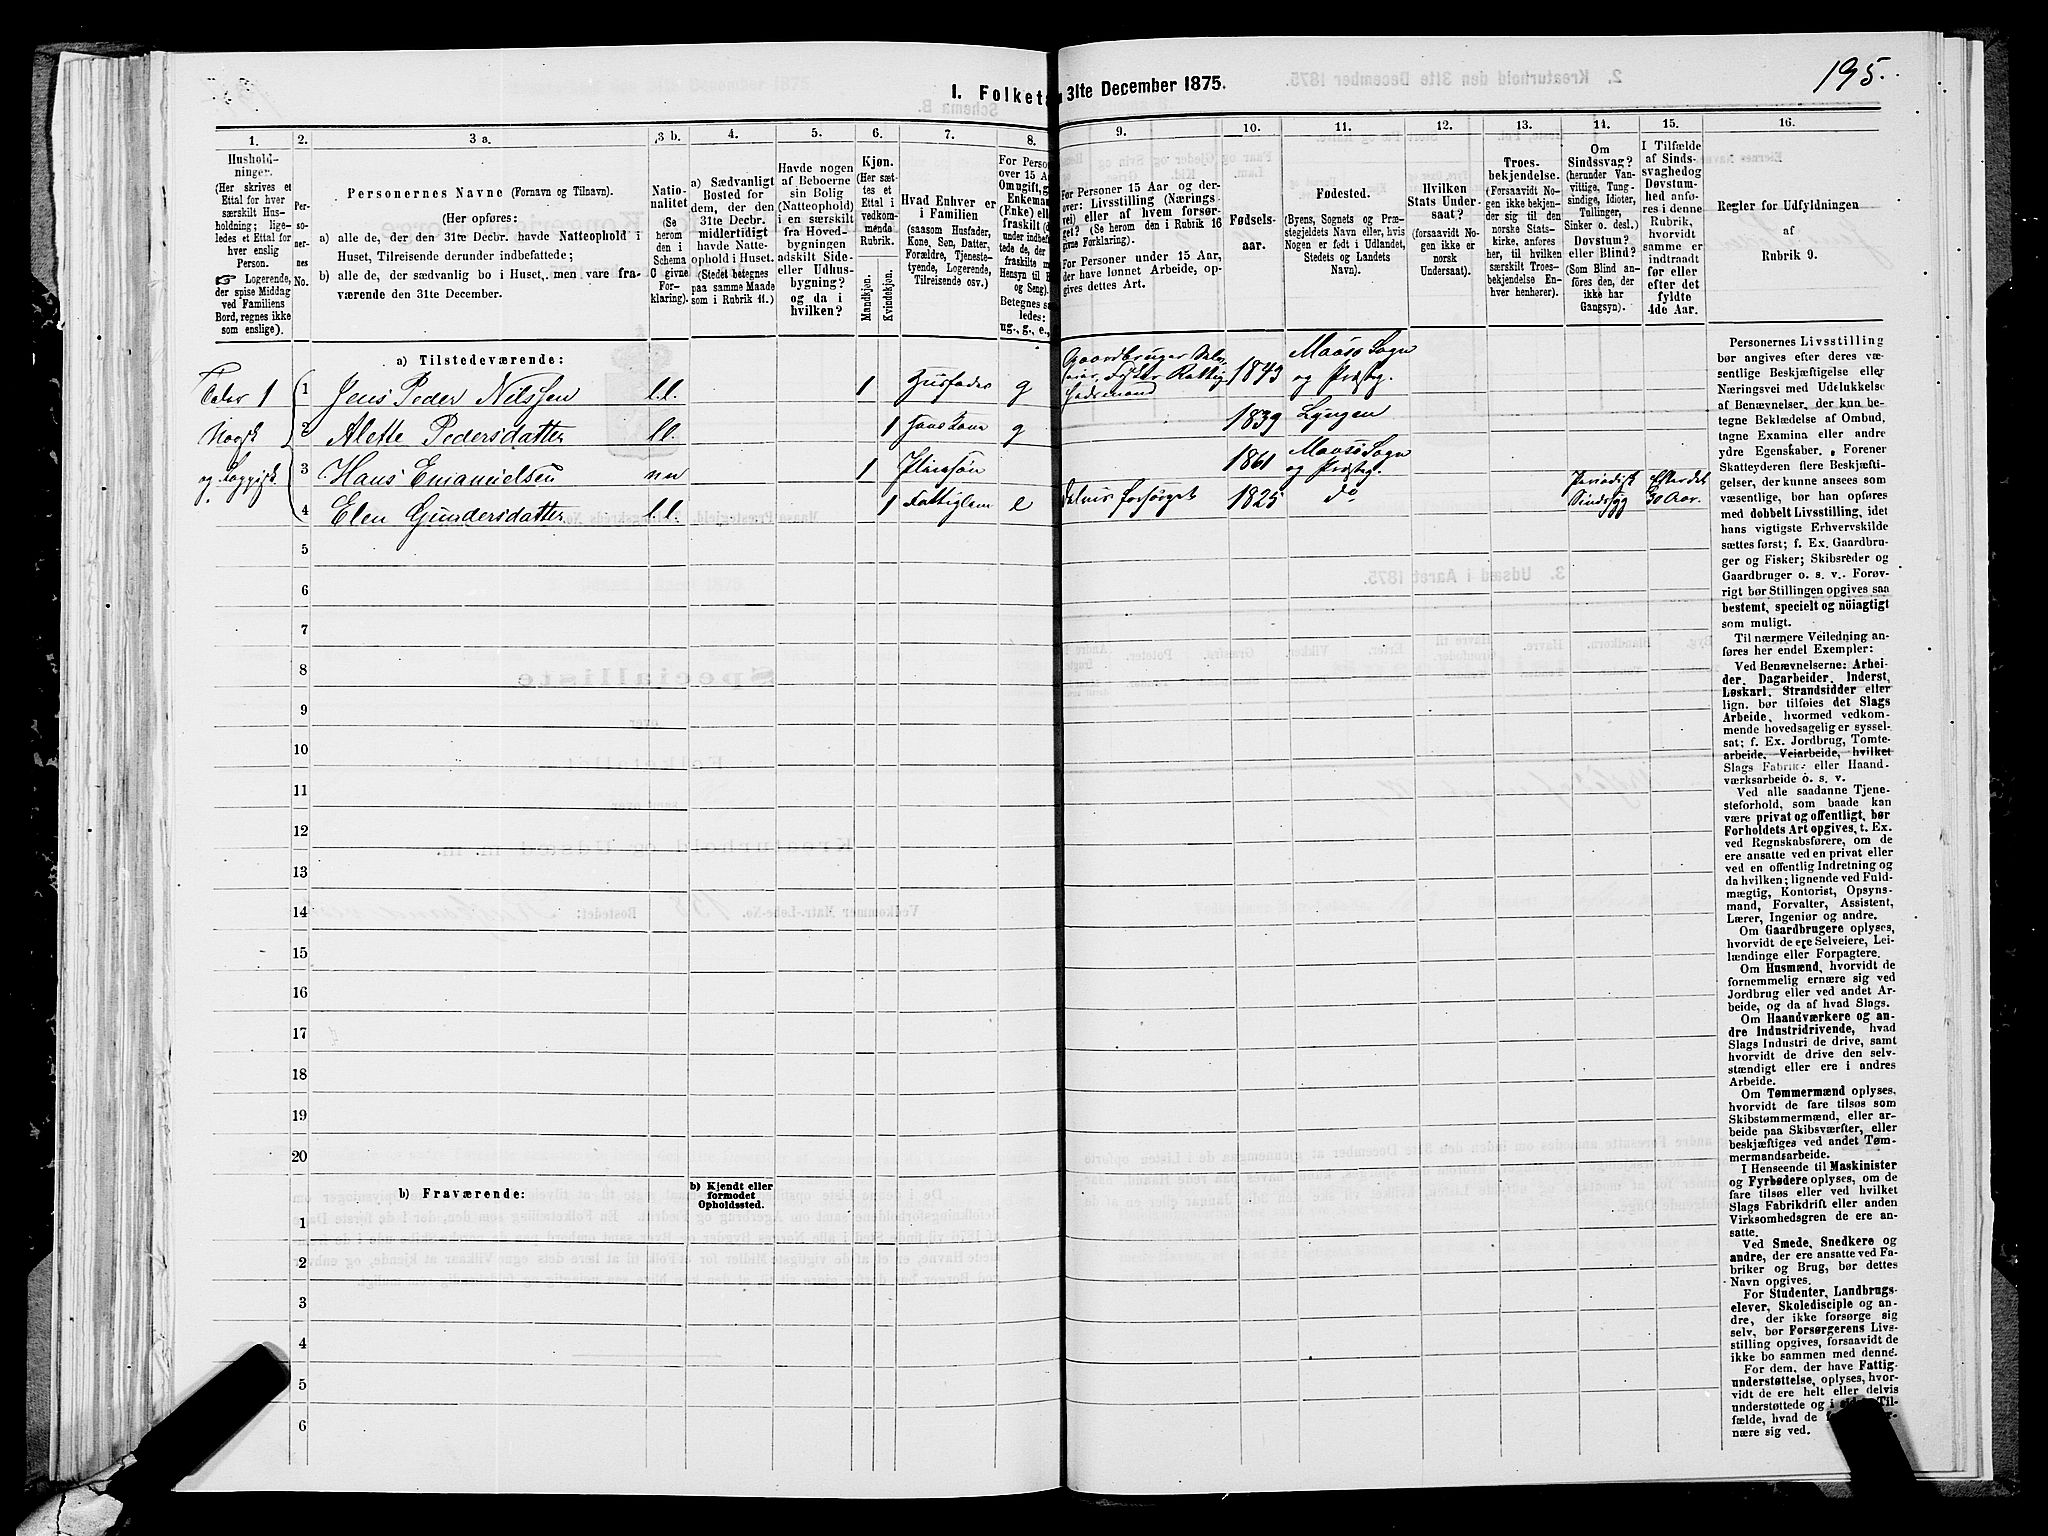 195.
I. Folketa 31te December 1875.
1. 2. 3 a. 3 b. 4. 5. 6. 7. 8. 9. 10. 11. 12. 13. 14. 15. 16.
Hushold-
ninger.
(Her skrives et
Ettal for hver
særskilt Hus-
holdning; lige-
ledes et Ettal for
hver enslig
Person.
☞ Logerende,
der spise Middag
ved Familiens
Bord, regnes ikke
som enslige).
Per-
so-
ner-
nes
No.
Personernes Navne (Fornavn og Tilnavn).
(Her opføres:
a) alle de, der den 31te Decbr. havde Natteophold i
Huset, Tilreisende derunder indbefattede;
b) alle de, der sædvanlig bo i Huset, men vare fra-
værende den 31te December.
Natio-
nalitet
(Se
herom
den i
Schema
C givne
For-
klaring).
a) Sædvanligt
Bosted for
dem, der den
31te Decbr.
midlertidigt
havde Natte-
ophold i Huset.
(Stedet betegnes
paa samme Maade
som i Rubrik 11.)
Havde nogen
af Beboerne
sin Bolig
(Natteophold)
i en særskilt
fra Hoved-
bygningen
adskilt Side-
eller Udhus-
bygning?
og da i
hvilken?
Kjøn.
(Her sæt-
tes et
Ettal i
vedkom-
mende
Rubrik.
Mandkjøn.
Kvindekjøn.
Hvad Enhver er
i Familien
(saasom Husfader,
Kone, Søn, Datter,
Forældre, Tjeneste-
tyende, Logerende,
Tilreisende osv.)
For Perso
over 15 Aa
Om ugift, g
Enkeman
(Enke) ell
fraskilt (d
under indbef
tede de, der
fraskilte m
Hensyn til B
og Seng).
Betegnes sa
ledes:
ug., g., e.,
For Personer 15 Aar og der-
over: Livsstilling (Nærings
vei) eller af hvem forsør-
get? (Se herom den i Rubrik 16
givne Forklaring).
For Personer under 15 Aar,
der have lønnet Arbeide, op-
gives dettes Art.
Fødsels-
aar.
Fødested.
(Byens, Sognets og Præ-
stegjeldets Navn eller, hvis
Nogen er født i Udlandet,
Stedets og Landets
Navn).
Hvilken
Stats Under-
saat?
(forsaavidt No-
gen ikke er
norsk
Undersaat).
Troes-
bekjendelse.
(Forsaavidt No-
gen ikke bekjen-
der sig til den
norske Stats-
kirke, anføres
her, til hvilken
særskilt Troes-
bekjendelse En-
hver henhører).
Om
Sindssvag?
(herunder Van-
vittige, Tung-
sindige, Idioter,
Tullinger,
Sinker o. desl.)
Døvstum?
eller Blind?
(Som Blind an-
føres den, der
ikke har
Gangsyn).
I Tilfælde
af Sinds-
svaghed og
Døvstum-
hed anfø-
res i denne
Rubrik,
hvorvidt
samme er
indtraadt
før eller
efter det
fyldte
4de Aar.
Regler for Udfyldningen
af
Rubrik 9.
a) Tilstedeværende:
Taler 1 1 Jens Peder Nilssen l.l. 1 Husfader g Gaardbruger Selv-
eier, Fisker 1843 Maasø Sogn
og Præsteg.
Norsk 2 Alette Pedersdatter l.l. 1 hans Kone g 1839 Lyngen
og Lappisk 3 Hans Emanuelsen nn 1 Pleiesøn 1861 Maasø Sogn
og Præsteg.
4 Elen Gundersdatter l.l. 1 Fattiglem e delvis forsørget 1825 do Periodisk
Sindssyg Efter det
30 Aar.
5
6
7
8
9
10
11
12
13
14
15
16
17
18
19
20
b) Fraværende:
b) Kjendt eller
formodet
Opholdssted.
1
2
3
4
5
6
Personernes Livsstilling
bør angives efter deres væ-
sentlige Beskjæftigelse eller
Næringsvei med Udelukkelse
af Benævnelser, der kun be-
tegne Beklædelse af Ombud,
tagne Examina eller andre
ydre Egenskaber. Forener
Skatteyderen flere Beskjæfti-
gelser, der kunne ansees som
væsentlige, bør han opføres
med dobbelt Livsstilling, idet
hans vigtigste Erhvervskilde
sættes først; f. Ex. Gaardbru-
ger og Fisker; Skibsreder og
Gaardbruger o. s. v. Forøv-
rigt bør Stillingen opgives saa
bestemt, specielt og nöiagtigt
som muligt.
Til nærmere Veiledning an-
føres her endel Exempler:
Ved Benævnelserne: Arbei-
der, Dagarbeider, Inderst,
Løskarl, Strandsidder eller
lign. bør tilføies det Slags
Arbeide, hvormed vedkom-
mende hovedsagelig er syssel-
sat; f. Ex. Jordbrug, Tomte-
arbeide, Veiarbeide, hvilket
Slags Fabrik- eller Haand-
værksarbeide o. s. v.
Ved alle saadanne Tjene-
steforhold, som baade kan
være privat og offentligt, bør
Forholdets Art opgives, t. Ex.
ved Regnskabsførere, om de
ere ansatte ved en privat eller
ved en offentlig Indretning og
da hvilken; lignende ved Fuld-
mægtig, Kontorist, Opsyns-
mand, Forvalter, Assistent,
Lærer, Ingeniør og andre.
Om Gaardbrugere oplyses,
hvorvidt de ere Selveiere, Lei-
lændinge eller Forpagtere.
Om Husmænd, hvorvidt de
fornemmelig ernære sig ved
Jordbrug eller ved andet Ar-
beide, og da af hvad Slags.
Om Haandværkere og an-
dre Industridrivende, hvad
Slags Industri de drive, samt
hvorvidt de drive den selv-
stændigt eller ere i andres
Arbeide.
Om Tømmermænd oplyses,
hvorvidt de fare tilsøs som
Skibstømmermænd, eller ar-
beide paa Skibsværfter, eller
beskjæftiges ved andet Tøm-
mermandsarbeide.
I Henseende til Maskinister
og Fyrbødere oplyses, om de
fare tilsøs eller ved hvilket
Slags Fabrikdrift eller anden
Virksomhedsgren de ere an-
satte.
Ved Smede, Snedkere og
andre, der ere ansatte ved Fa-
briker og Brug, bør dettes
Navn opgives.
For Studenter, Landbrugs-
elever, Skoledisciple og an-
dre, der ikke forsørge sig
selv, bør Forsørgerens Livs-
stilling opgives, forsaavidt de
ikke bo sammen med denne.
For dem, der have Fattig-
understøttelse, oplyses, hvor-
vidt de ere helt eller delvis
understøttede og i
fælde, hvad de
nære sig ved.